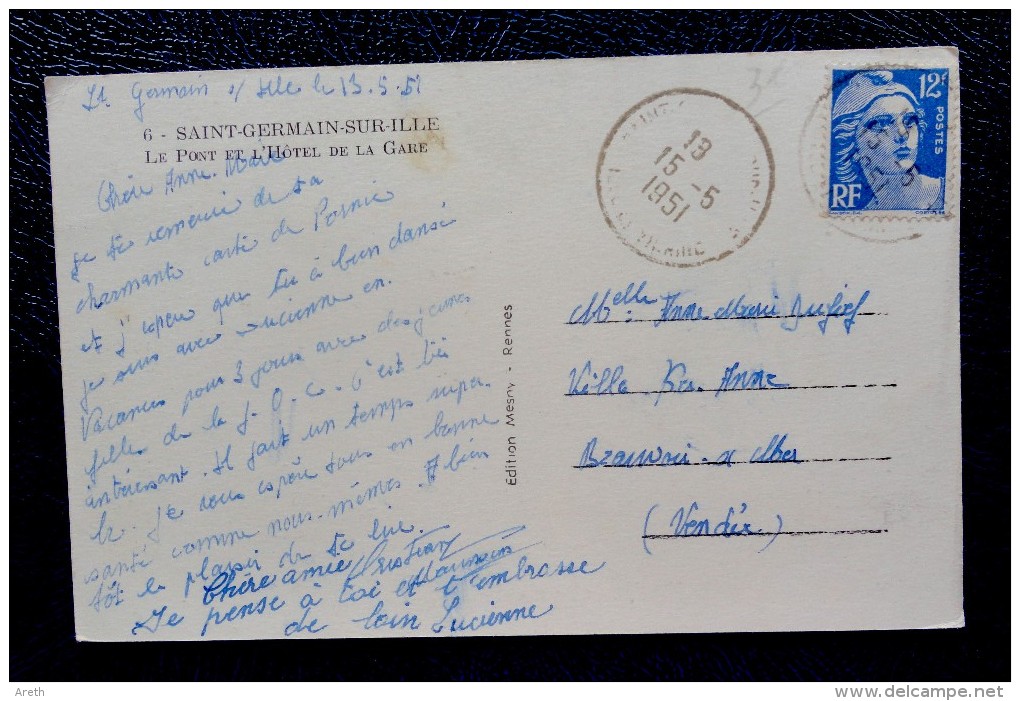 St Germain s/ Ille le 13.5.51
6 - SAINT-GERMAIN-SUR-ILLE
LE PONT ET L'HÔTEL DE LA GARE
Chère Anne-Marie
Je te remercie de ta
charmante carte de Pornic
et j'espère que tu à bien dansé
je suis avec Lucienne en
Vacances pour 3 jours avec des jeunes
filles de la J.O.C. C'est très
intéressant. Il fait un temps super-
be. Je vous espère tous en bonne
santé comme nous-mêmes. A bien
tôt le plaisir de te lire.
Chère amie
Je pense à toi et t'embrasse
de loin Lucienne
Edition Mesny - Rennes
18
15 - 5
1951
ILLE ET VILAINE
12F
POSTES
RF
Melle Anne Marie
Villa Ker Anne
(Vendée)
Areth
delcampe.net